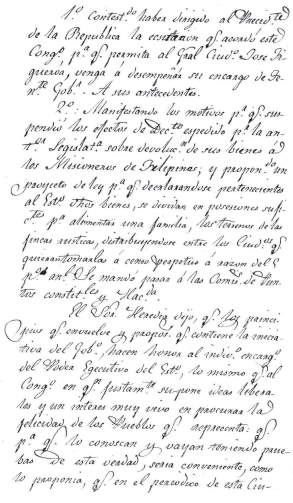 1.º Contest.do haber dirigido al Precid.te
de la Republica la ecsitacion q.e acordó este
Cong.o, p.a q.e permita al Gral Ciud.o Jose Fi-
gueroa, venga á desempeñar su encargo de Te-
n.te Gob.r. A sus antecedentes.
2.º: Manifestando los motivos p.a q.e sus-
pendio los efectos de Dec.to espedido p.r la an-
t.or Legislat.a sobre devoluc.n de sus bienes á
los Misioneros de Filipinas; y propon.do un
proyecto de ley p.a q.e declarandose pertenecientes
al Est.o dhos bienes, se dividan en posesiones sufi-
c.tes p.a alimentar una familia, los terrenos de las
fincas rusticas, destribuyendose entre los Ciud.os q.e
quieran tomarlas á censo perpetuo á razon del 5
p.r an.l Se mandó pasar á las Comis.s de Pun-
tos constit.les y Hac.da
El Sor. Heredia dijo, q.e los princi-
pios q.e envuelve y propos. q.e contiene la inicia-
tiva del Gob.o, hacen honor al indiv.o encarg.do
del Poder Egecutivo del Est.o, lo mismo q.e al
Congreso en q.n justam.te supone ideas libera-
les y un interes muy vivo en procurar la
felicidad de los Pueblos q.e representa: q.e
p.a q.e lo conoscan y vayan teniendo prue-
bas de esta verdad, seria conveniente, como
lo proponia, q.e en el periodico de esta Ciu-